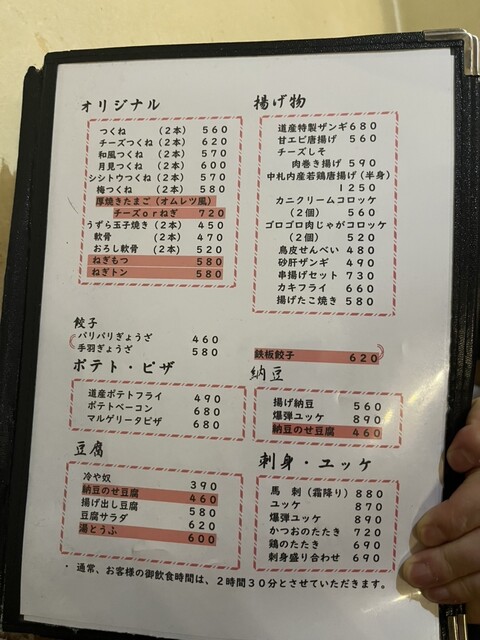 オリジナル
つくね (2本) 560
チーズつくね (2本) 620
和風つくね (2本) 570
月見つくね (2本) 600
シシトウつくね (2本) 570
梅つくね (2本) 580
厚焼きたまご(オムレツ風)
チーズorねぎ 720
うずら玉子焼き(2本) 450
軟骨 (2本) 470
おろし軟骨 (2本) 520
ねぎもつ 580
ねぎトン 580
揚げ物
道産特製ザンギ 680
甘エビ唐揚げ 560
チーズしそ
肉巻き揚げ 590
中札内産若鶏唐揚げ(半身)
1250
カニクリームコロッケ
(2個) 560
ゴロゴロ肉じゃがコロッケ
(2個) 520
鳥皮せんべい 480
砂肝ザンギ 490
串揚げセット 730
カキフライ 660
揚げたこ焼き 580
餃子
パリパリぎょうざ 460
手羽ぎょうざ 580
鉄板餃子 620
ポテト・ピザ
道産ポテトフライ 490
ポテトベーコン 680
マルゲリータピザ 680
納豆
揚げ納豆 560
爆弾ユッケ 890
納豆のせ豆腐 460
豆腐
冷や奴 390
納豆のせ豆腐 460
揚げ出し豆腐 580
豆腐サラダ 620
湯とうふ 600
刺身・ユッケ
馬刺(霜降り) 880
ユッケ 870
爆弾ユッケ 890
かつおのたたき 720
鶏のたたき 690
刺身盛り合わせ 690
・通常、お客様の御飲食時間は、2時間30分とさせていただきます。